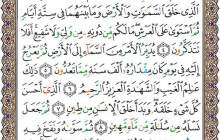 الَّذِى خَلَقَ السَّمَٰوَٰتِ وَالْأَرْضَ وَمَا بَيْنَهُمَا فِى سِتَّةِ أَيَّامٍ
ثُمَّ اسْتَوَىٰ عَلَى الْعَرْشِ مَا لَكُم مِّن دُونِهِ مِن وَلِىٍّ وَلَا شَفِيعٍ أَفَلَا
تَتَذَكَّرُونَ ٤ يُدَبِّرُ الْأَمْرَ مِنَ السَّمَاءِ إِلَى الْأَرْضِ ثُمَّ يَعْرُجُ
إِلَيْهِ فِى يَوْمٍ كَانَ مِقْدَارُهُ أَلْفَ سَنَةٍ مِّمَّا تَعُدُّونَ ٥ ذَٰلِكَ
عَٰلِمُ الْغَيْبِ وَالشَّهَٰدَةِ الْعَزِيزُ الرَّحِيمُ ٦ الَّذِى أَحْسَنَ
كُلَّ شَىْءٍ خَلَقَهُ وَبَدَأَ خَلْقَ الْإِنسَٰنِ مِن طِينٍ ٧ ثُمَّ جَعَلَ
نَسْلَهُ مِن سُلَٰلَةٍ مِّن مَّاءٍ مَّهِينٍ ٨ ثُمَّ سَوَّىٰهُ وَنَفَخَ فِيهِ